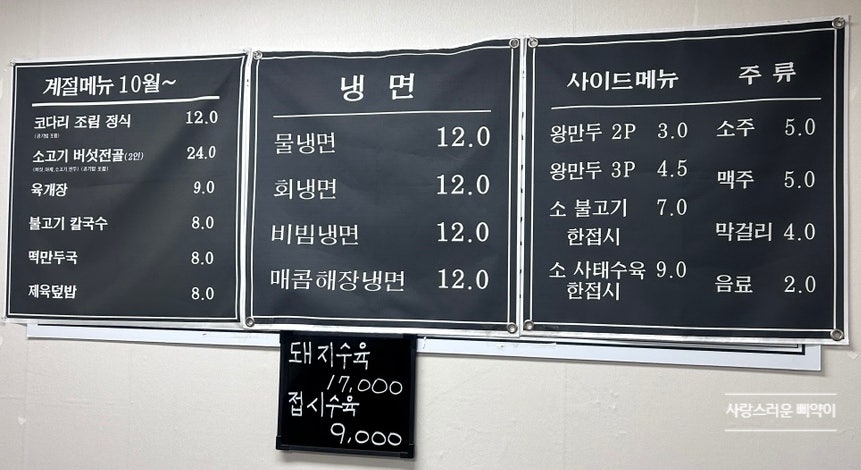 계절메뉴 10월~
코다리 조림 정식 12.0
(공기밥 포함)
소고기 버섯전골(2인) 24.0
육개장 9.0
불고기 칼국수 8.0
떡만두국 8.0
제육덮밥 8.0
냉 면
물냉면 12.0
회냉면 12.0
비빔냉면 12.0
매콤해장냉면 12.0
사이드메뉴
왕만두 2P 3.0
왕만두 3P 4.5
소 불고기 7.0
한접시
소 사태수육 9.0
한접시
주 류
소주 5.0
맥주 5.0
막걸리 4.0
음료 2.0
돼지수육
17,000
접시수육
9,000
사랑스러운 삐약이